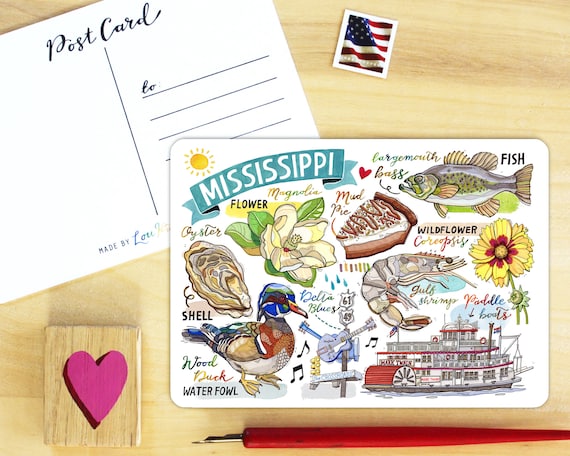 Post Card
to:
MADE BY
MISSISSIPPI
FLOWER
Magnolia
Mud
Pie
largemouth
bass
FISH
Oyster
SHELL
WILDFLOWER
Coreopsis
Gulf
shrimp
Delta
Blues
61
49
Paddle
boats
Wood
Duck
WATER FOWL
MARK TWAIN